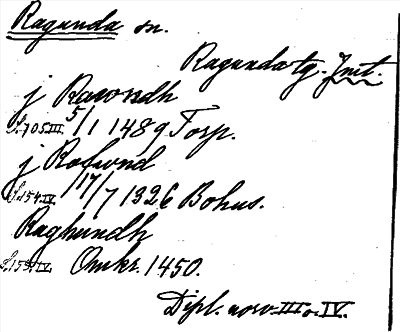 Ragunda sn.
Ragunda tg. Jmt.
j Rawndh
S. 705 III. 5/1 1489 Torp.
j Rafwnd
S. 154 IV. 17/7 1326 Bohus.
Raghundh
S. 159. IV. Omkr. 1450.
Dipl. norv. III o. IV.